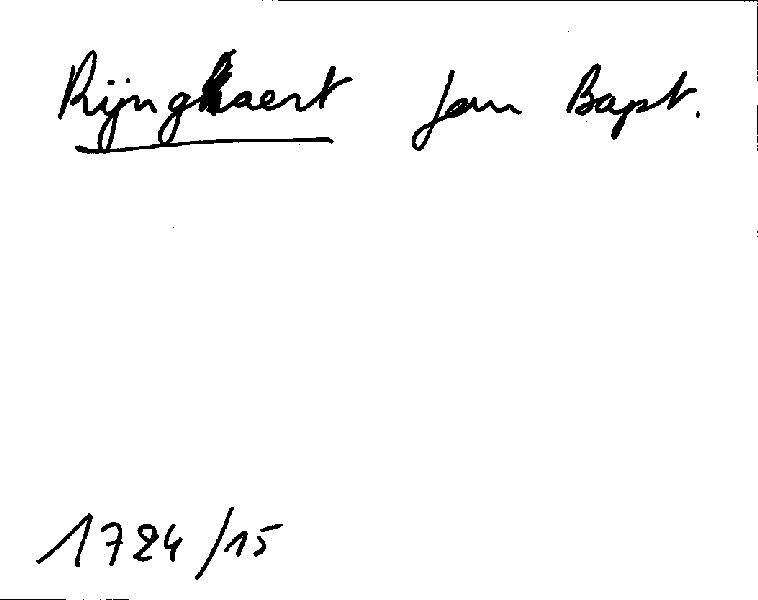 Rijnghaert Jan Bapt.
1724/15